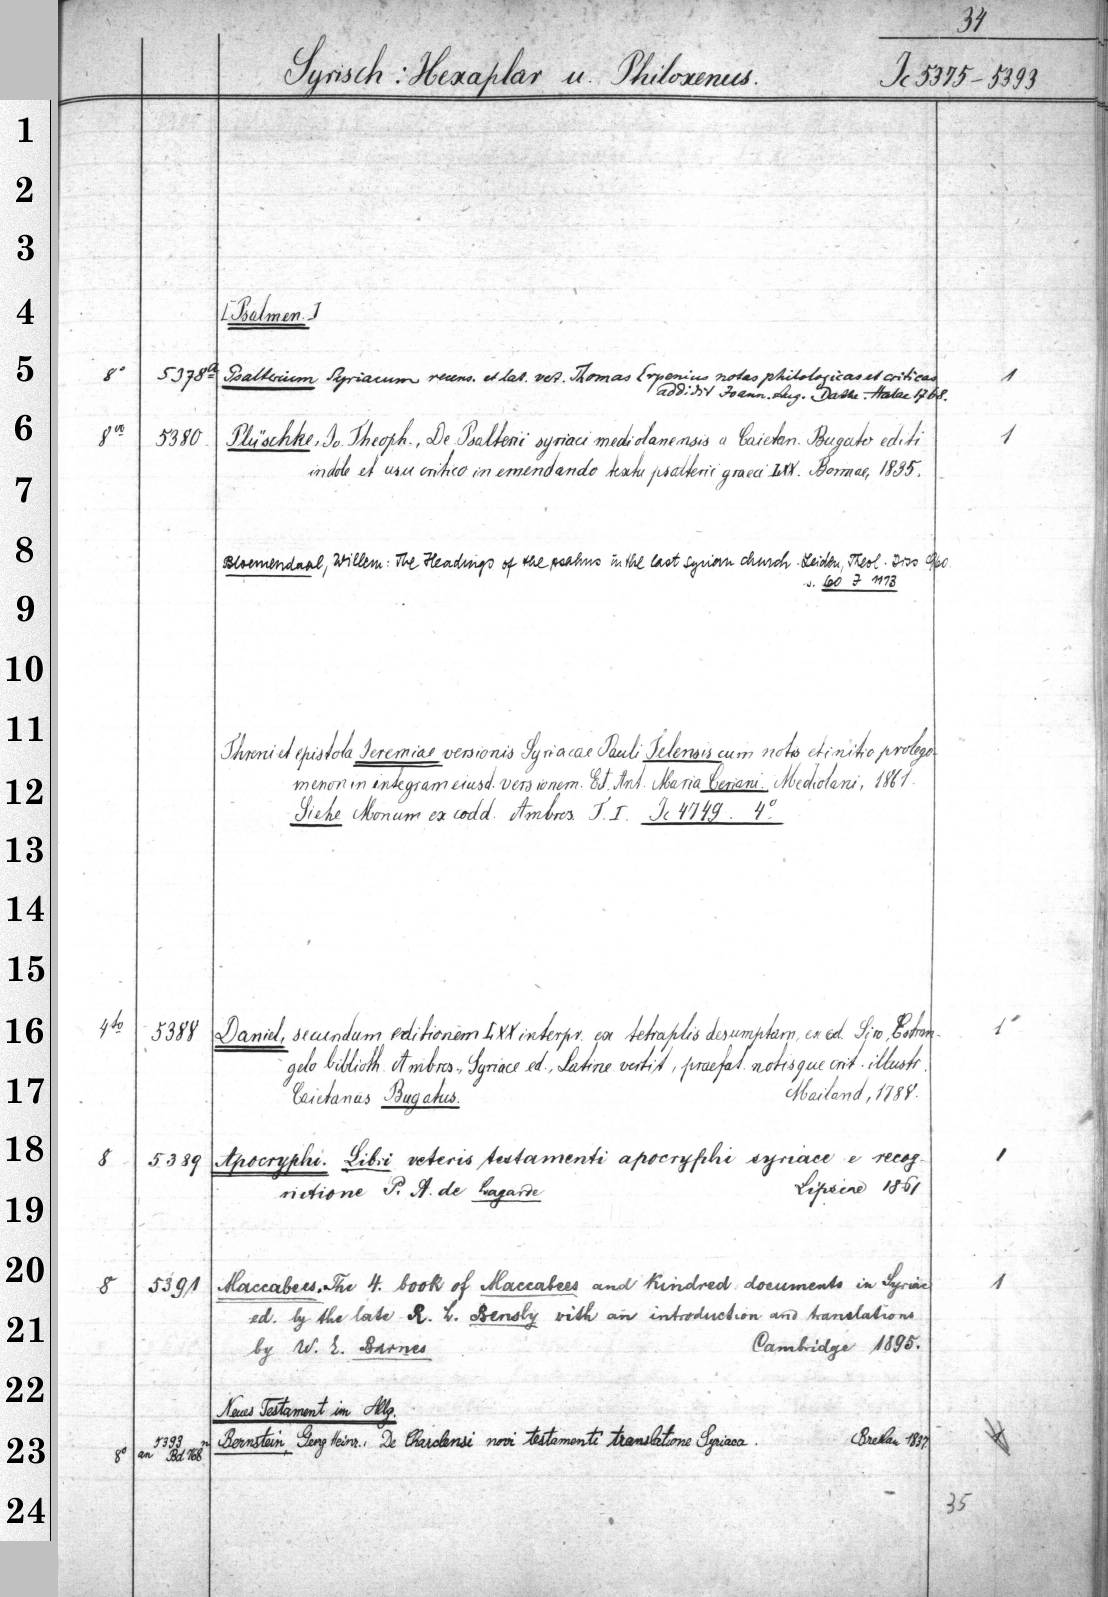 34
Syrisch: Hexaplar u. Philoxenus. Ic 5375-5393
1
2
3
4 [Psalmen.]
5 8° 5378a Psalterium Syriacum recens. et lat. vert. Thomas Erpenius notas philologicas et criticas 1
addidit Joann. Aug. Dathe. Halae 1768.
6 8vo 5380 Plüschke, Jo. Theoph., De Psalterii syriaci mediolanensis a Caietan. Bugato editi 1
indole et usu critico in emendando textu psalterii graeci LXX. Bonnae, 1835.
7
8 Bloemendaal, Willem: The Headings of the psalms in the East Syrian church. Leiden, Theol. Diss 1960
s. 60 J 1173
9
10
11 Threni et epistola Jeremiae versionis Syriacae Pauli Telensis cum notis et initio prolego-
12 menon in integram eiusd. versionem. Ed. Ant. Maria Ceriani. Mediolani, 1861.
Siehe Monum ex codd. Ambros. T. I. Ic 4749. 4°
13
14
15
16 4to 5388 Daniel, secundum editionem LXX interpr. ex tetraplis desumptam, ex cd. Siro, Estran- 1
gelo biblioth. Ambros., Syriace ed., Latine vertit, praefat. notisque crit. illustr.
17 Caietanus Bugatus. Mailand, 1788.
18 8 5389 Apocryphi. Libri veteris testamenti apocryphi syriace e recog- 1
nictione P. A. de Lagarde Lipsiae 1861
19
20 8 5391 Maccabees. The 4. book of Maccabees and kindred documents in Syriac 1
21 ed. by the late R. L. Bensly with an introduction and translations
by W. E. Barnes Cambridge 1895.
22 Neues Testament im Allg.
23 8° 5393 an Bd 768 Bernstein, Georg Heinr.: De Charclensi novi testamenti translatione Syriaca. Breslau 1837
24 35